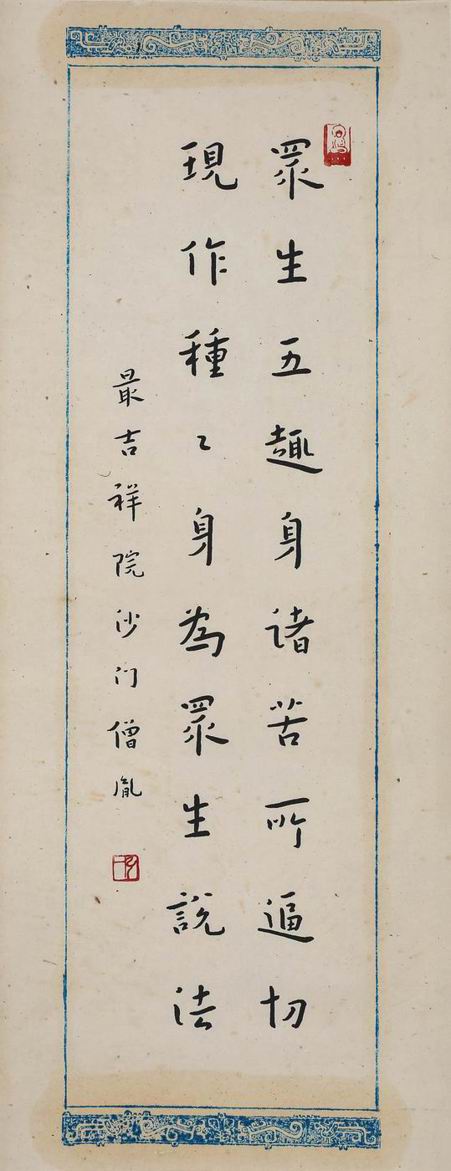 眾生五趣身诸苦所逼切
現作種〻身為眾生說法
最吉祥院沙门僧胤